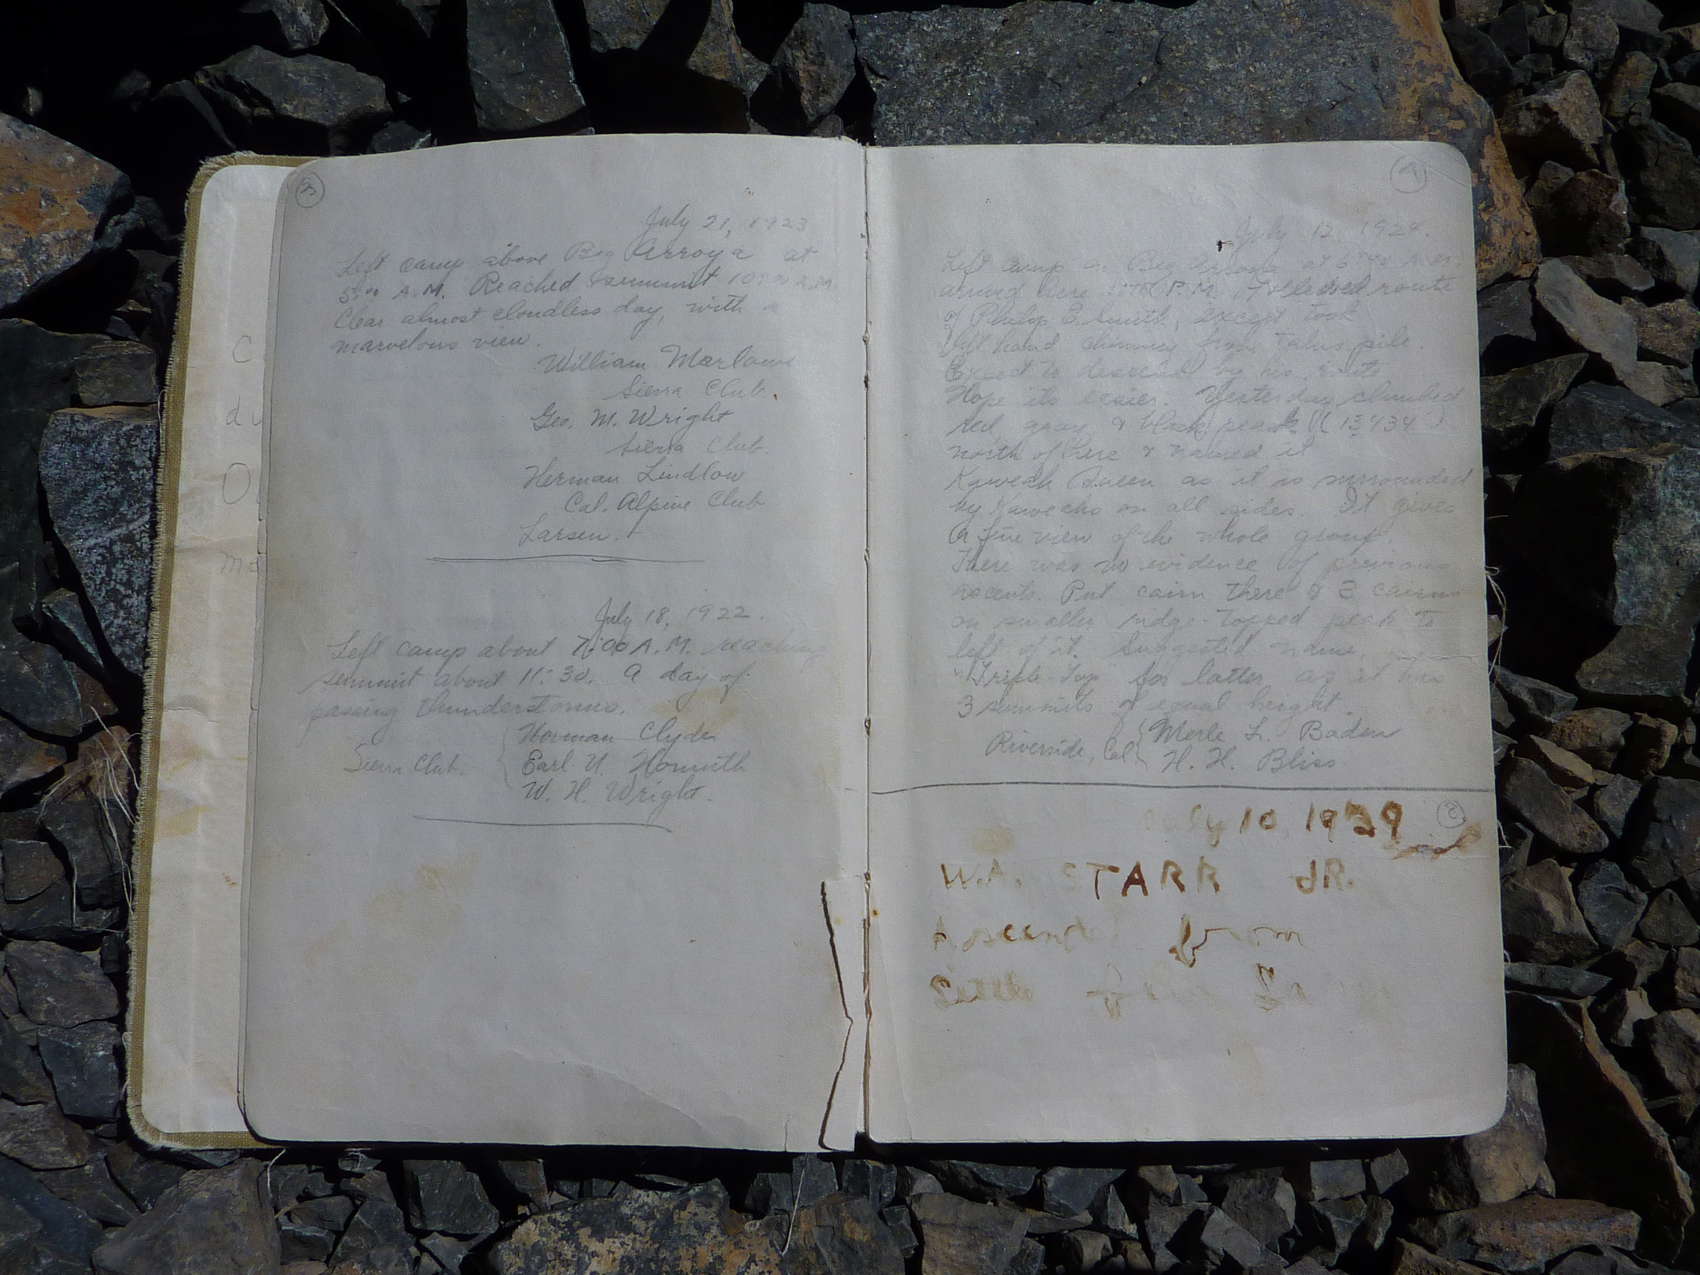 July 21, 1923
Left camp above Big Arroya at
A.M. Reached summit
Clear almost cloudless day, with a
marvelous view.
William Marlowe
Sierra Club.
Geo. M. Wright
Sierra Club.
Herman Lindlow
Cal. Alpine Club
Larsen.
July 18, 1922.
Left camp about 7:00 A.M. reaching
summit about 11:30. A day of
passing thunderstorms.
Norman Clyde
Sierra Club. Earl U. Homuth
W. H. Wright.
July 12, 1924.
Left camp on Big Arroya at
arrived here P.M. Followed route
of Philip E. Smith, except took
left hand chimney from talus pile.
Expect to descend by his route
Hope its easier. Yesterday climbed
red gray & black peak (13434')
north of here & named it
Kaweah Queen as it is surrounded
by Kaweahs on all sides. It gives
a fine view of the whole group.
There was no evidence of previous
ascents. Put cairn there & 3 cairns
on smaller ridge-topped peak to
left of it. Suggested name,
"Triple Top for latter as it has
3 summits of equal height.
Riverside, Cal Merle L. Baden
H. H. Bliss
July 10 1929
W.A. STARR JR.
Ascended from
Little